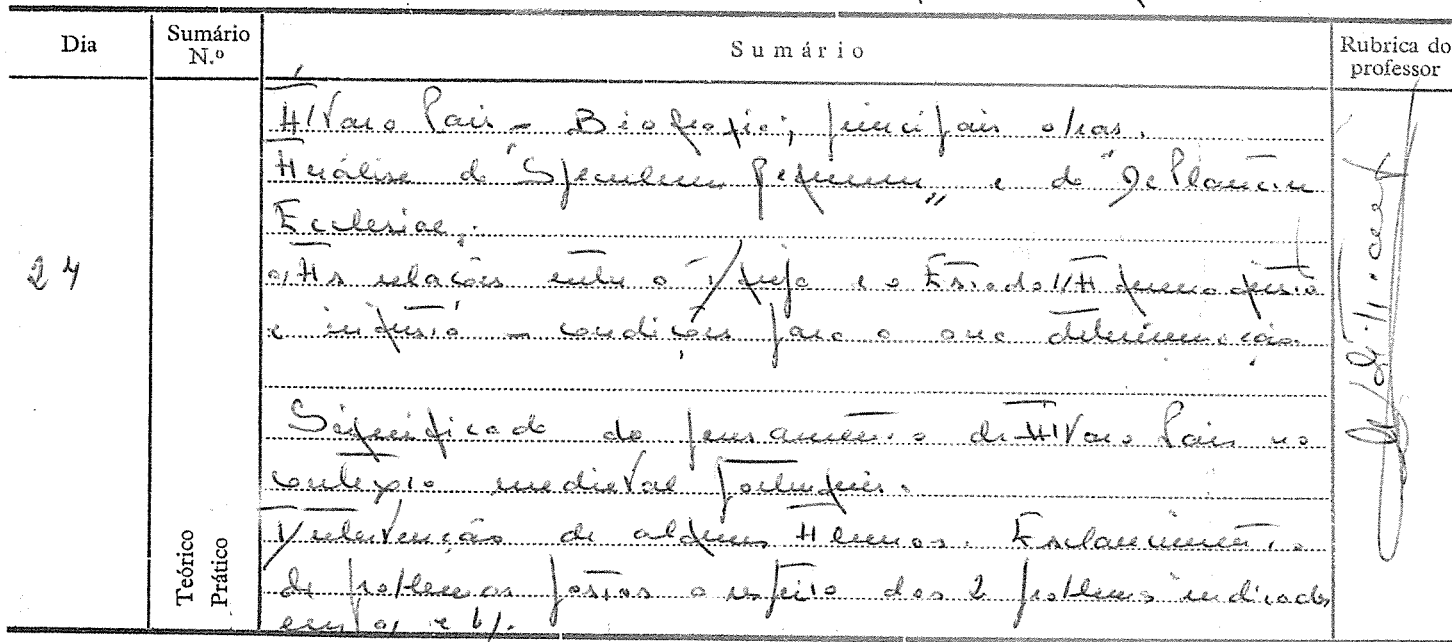 Dia
Sumário N.º
Sumário
Rubrica do professor
Álvaro Pais - Biografia; principais obras.
Análise do "Speculum Regum" e do "De Planctu
Ecclesiae".
a) As relações entre a Igreja e o Estado b) A guerra justa
e injusta - condições para a sua determinação.
24
Significado do pensamento de Álvaro Pais no
contexto medieval português.
Intervenção de alguns Alunos. Esclarecimento
de problemas postos a respeito dos 2 problemas indicados
em a) e b).
Teórico
Prático